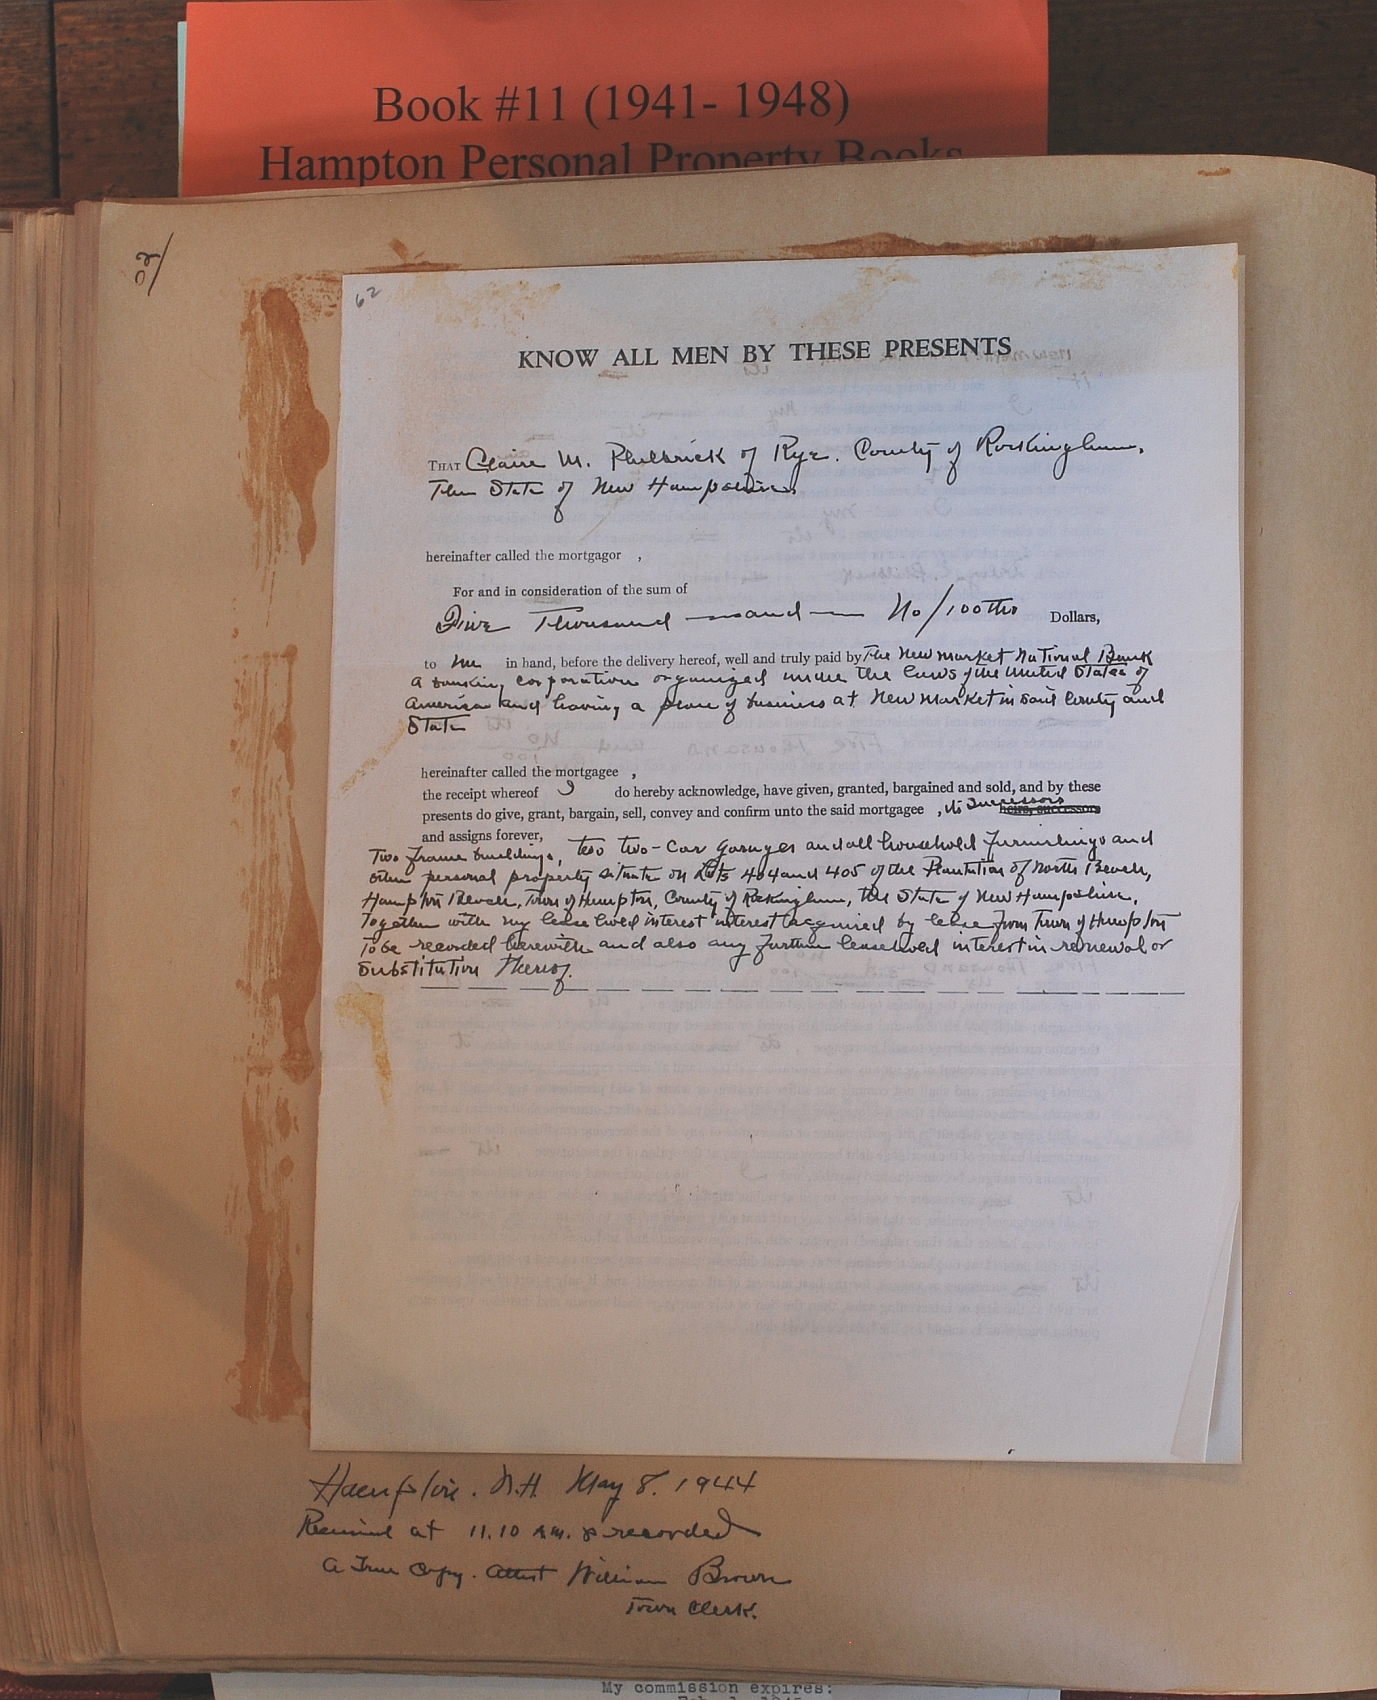 Book #11 (1941- 1948)
Hampton Personal Property Books
62
KNOW ALL MEN BY THESE PRESENTS
THAT Claire M. Philbrick of Rye. County of Rockingham,
The State of New Hampshire
hereinafter called the mortgagor ,
For and in consideration of the sum of
Five Thousand and No/100ths Dollars,
to me in hand, before the delivery hereof, well and truly paid by The New Market National Bank
a banking corporation organized under the laws of the United States of
America and having a place of business at New Market in said County and
State
hereinafter called the mortgagee ,
the receipt whereof I do hereby acknowledge, have given, granted, bargained and sold, and by these
presents do give, grant, bargain, sell, convey and confirm unto the said mortgagee , its successors heirs, successors
and assigns forever,
Two frame buildings, two two-car garages and all household furnishings and
other personal property situate on Lots 404 and 405 of the Plantation of North Beach,
Hampton Beach, Town of Hampton, County of Rockingham, the State of New Hampshire.
Together with my lease hold interest interest acquired by lease from Town of Hampton
to be recorded herewith and also any further leasehold interest in renewal or
substitution thereof.
Hampton. N.H. May 8. 1944
Received at 11.10 A.M. & recorded
A True Copy. Attest William Brown
Town Clerk.
My commission expires: